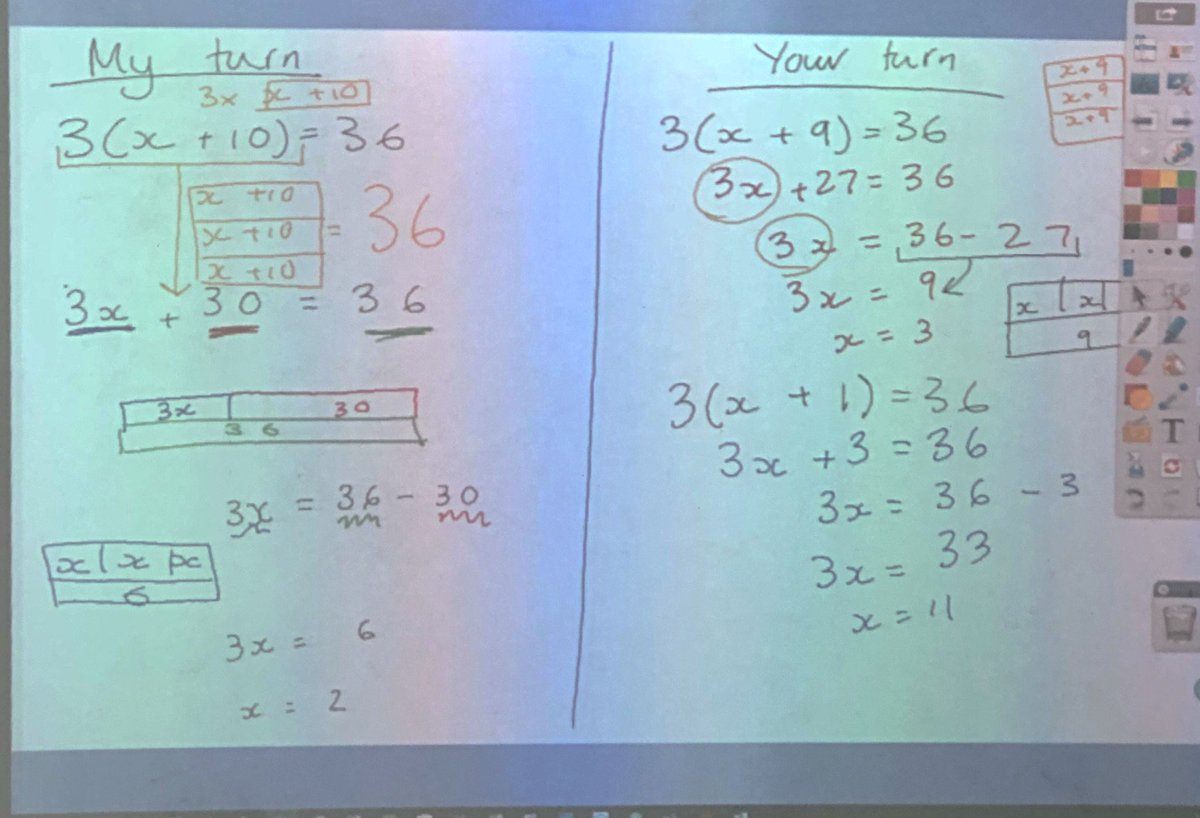 My turn
3x x + 10
3(x + 10) = 36
x + 10
x + 10 = 36
x + 10
3x + 30 = 36
3x 30
36
3x = 36 - 30
x | x | x
6
3x = 6
x = 2
Your turn
x + 9
x + 9
x + 9
3(x + 9) = 36
3x + 27 = 36
3x = 36 - 27
3x = 9
x | x |
9
x = 3
3(x + 1) = 36
3x + 3 = 36
3x = 36 - 3
3x = 33
x = 11
T